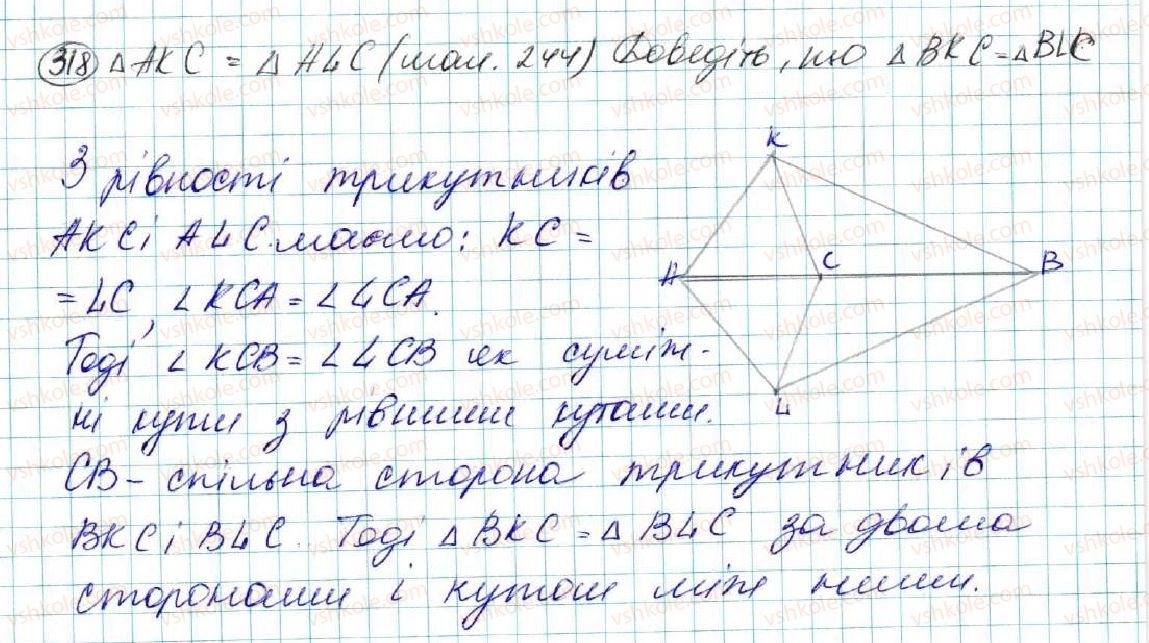 318 △ AKC = △ ALC (мал. 244) Доведіть, що △ BKC = △ BLC
З рівності трикутників
AKC і ALC маємо: KC =
= LC, ∠ KCA = ∠ LCA.
Тоді ∠ KCB = ∠ LCB як суміж-
ні кути з рівними кутами.
CB – спільна сторона трикутників
BKC і BLC. Тоді △ BKC = △ BLC за двома
сторонами і кутом між ними.
K
A
C
B
L
vshkole.com